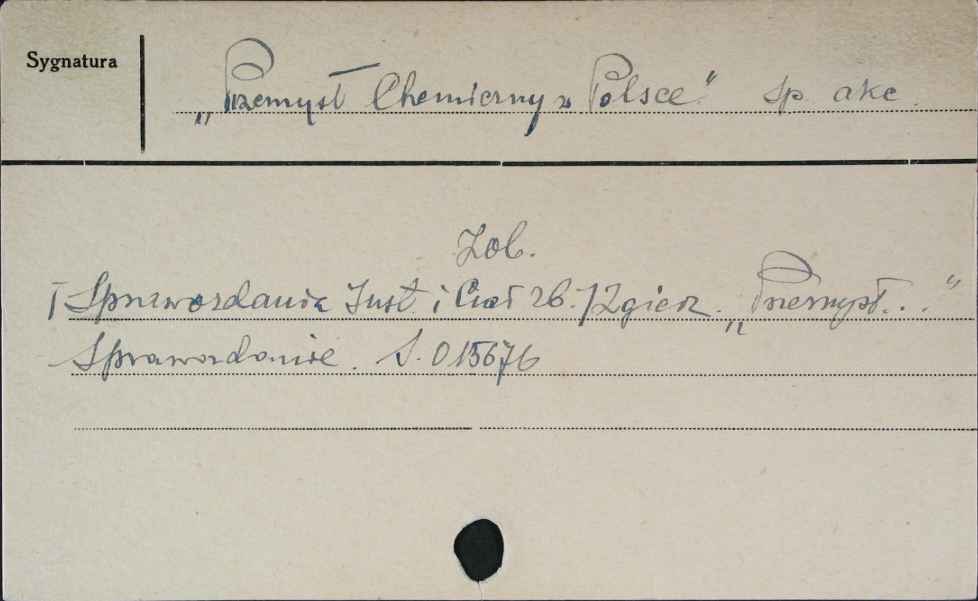 Sygnatura
„Przemysł Chemiczny w Polsce" Sp. akc.
Zob.
Sprawozdania Inst. i Ciał zb. /Zgierz. „Przemysł..."
Sprawozdanie. S. 015676